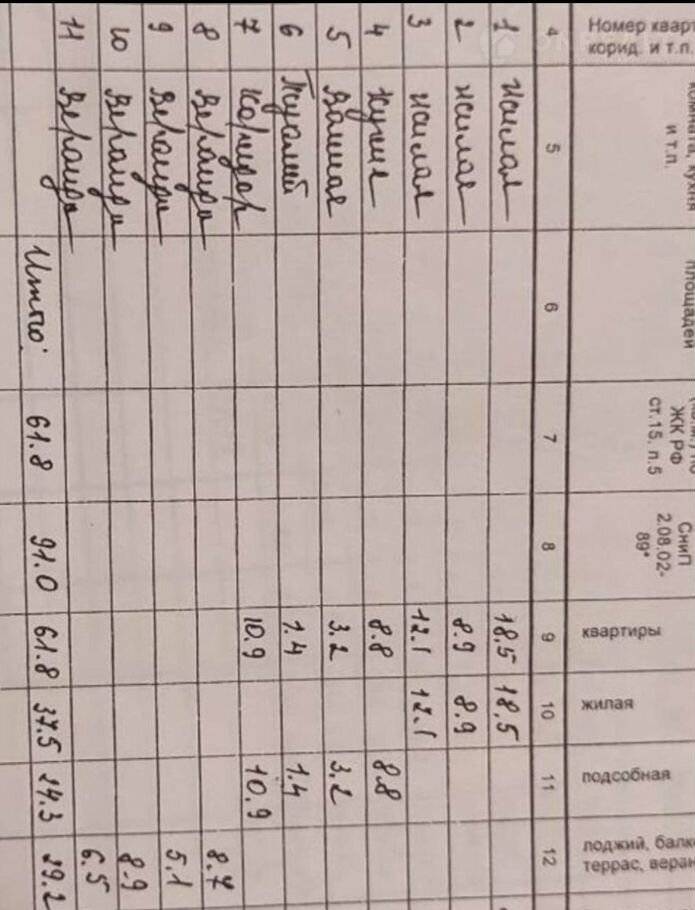 Номер кварт
корид. и т.п.
комната, кухня
и т.п.
площадей
ЖК РФ
ст.15. п.5
СниП
2.08.02-
89*
квартиры
жилая
подсобная
лоджий, балк
террас, веран
4 5 6 7 8 9 10 11 12
1 жилая 18,5 18,5
2 жилая 8.9 8.9
3 жилая 12.1 12.1
4 кухня 8.8 8.8
5 Ванная 3.2 3.2
6 Туалет 1.4 1.4
7 Коридор 10.9 10.9
8 Веранда 8.7
9 Веранда 5.1
10 Веранда 8.9
11 Веранда 6.5
Итого: 61.8 91.0 61.8 37.5 24.3 29.2